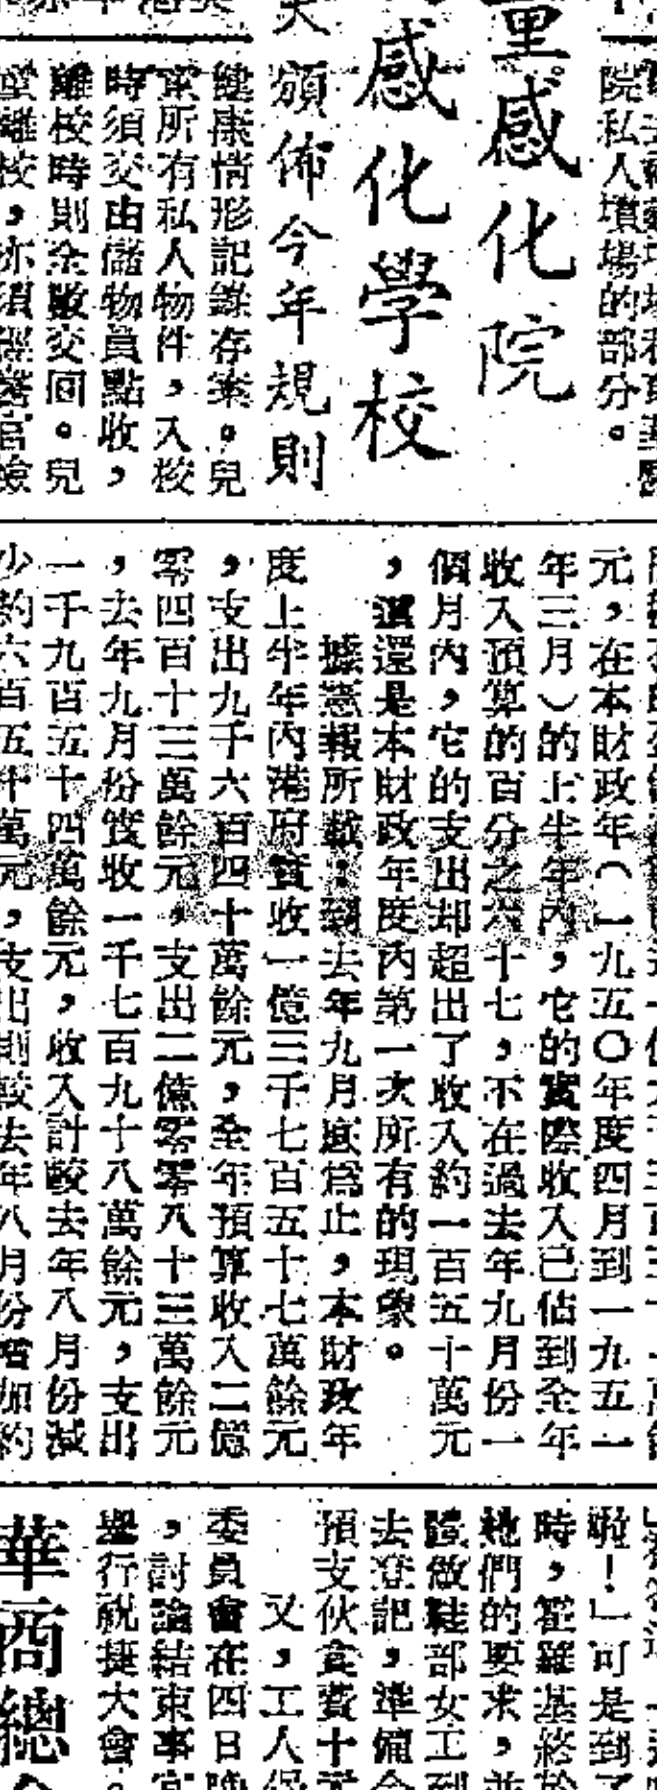 院私人墳場的部分。
童感化院
感化學校
頒佈今年規則
健康情形記錄存案。兒
童所有私人物件,入校
時須交由儲物員點收,
離校時則全數交回。兒
童離校,亦須經醫官檢
元,在本財政年(一九五〇年度四月到一九五一
年三月)的上半年內,它的實際收入已佔到全年
收入預算的百分之六十七,不在過去年九月份一
個月內,它的支出却超出了收入約一百五十萬元
,這還是本財政年度內第一次所有的現象。
據憲報所載:到去年九月底為止,本財政年
度上半年內港府實收一億三千七百五十七萬餘元
,支出九千六百四十萬餘元,全年預算收入二億
零四百十三萬餘元,支出二億零零八十三萬餘元
,去年九月份實收一千七百九十八萬餘元,支出
一千九百五十四萬餘元,收入計較去年八月份減
少約六百五十萬元,支出則較去年八月份增加約
啦!」可是到了
時,霍羅基終於
她們的要求,並
證做鞋部女工到
去登記,準備今
預支伙食費十元
又,工人保
委員會在四日晚
,討論結束事宜
舉行祝捷大會。
華商總會